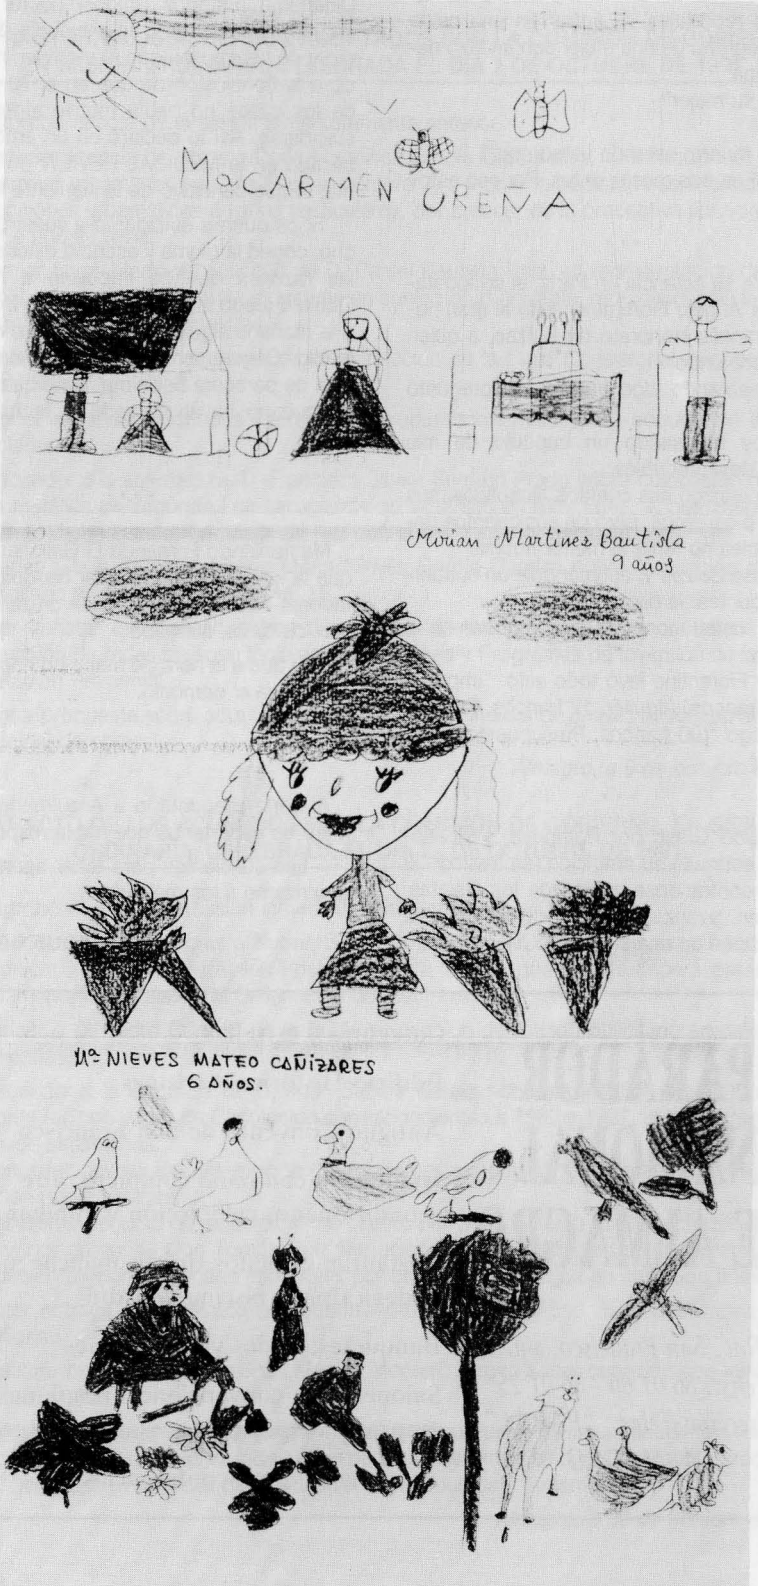 Mª CARMEN UREÑA
Mirian Martinez Bautista
9 años
Mª NIEVES MATEO CAÑIZARES
6 AÑOS.